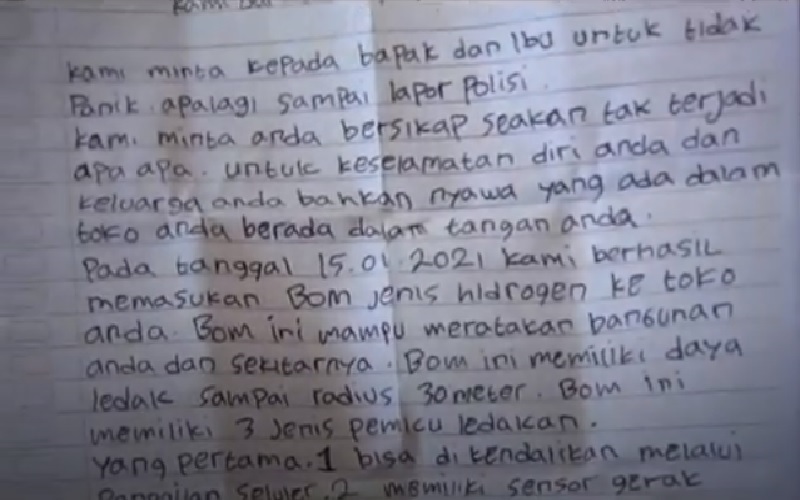 kami
kami minta kepada bapak dan Ibu untuk tidak
Panik. apalagi sampai lapor Polisi.
kami minta anda bersikap seakan tak terjadi
apa apa. untuk keselamatan diri anda dan
keluarga anda bahkan nyawa yang ada dalam
toko anda berada dalam tangan anda.
Pada tanggal 15.01.2021 kami berhasil
memasukan Bom jenis hidrogen ke toko
anda. Bom ini mampu meratakan bangunan
anda dan sekitarnya. Bom ini memiliki daya
ledak sampai radius 30 meter. Bom ini
memiliki 3 Jenis pemicu ledakan.
yang pertama.1 bisa di kendalikan melalui
Panggilan seluler.2 memiliki sensor gerak